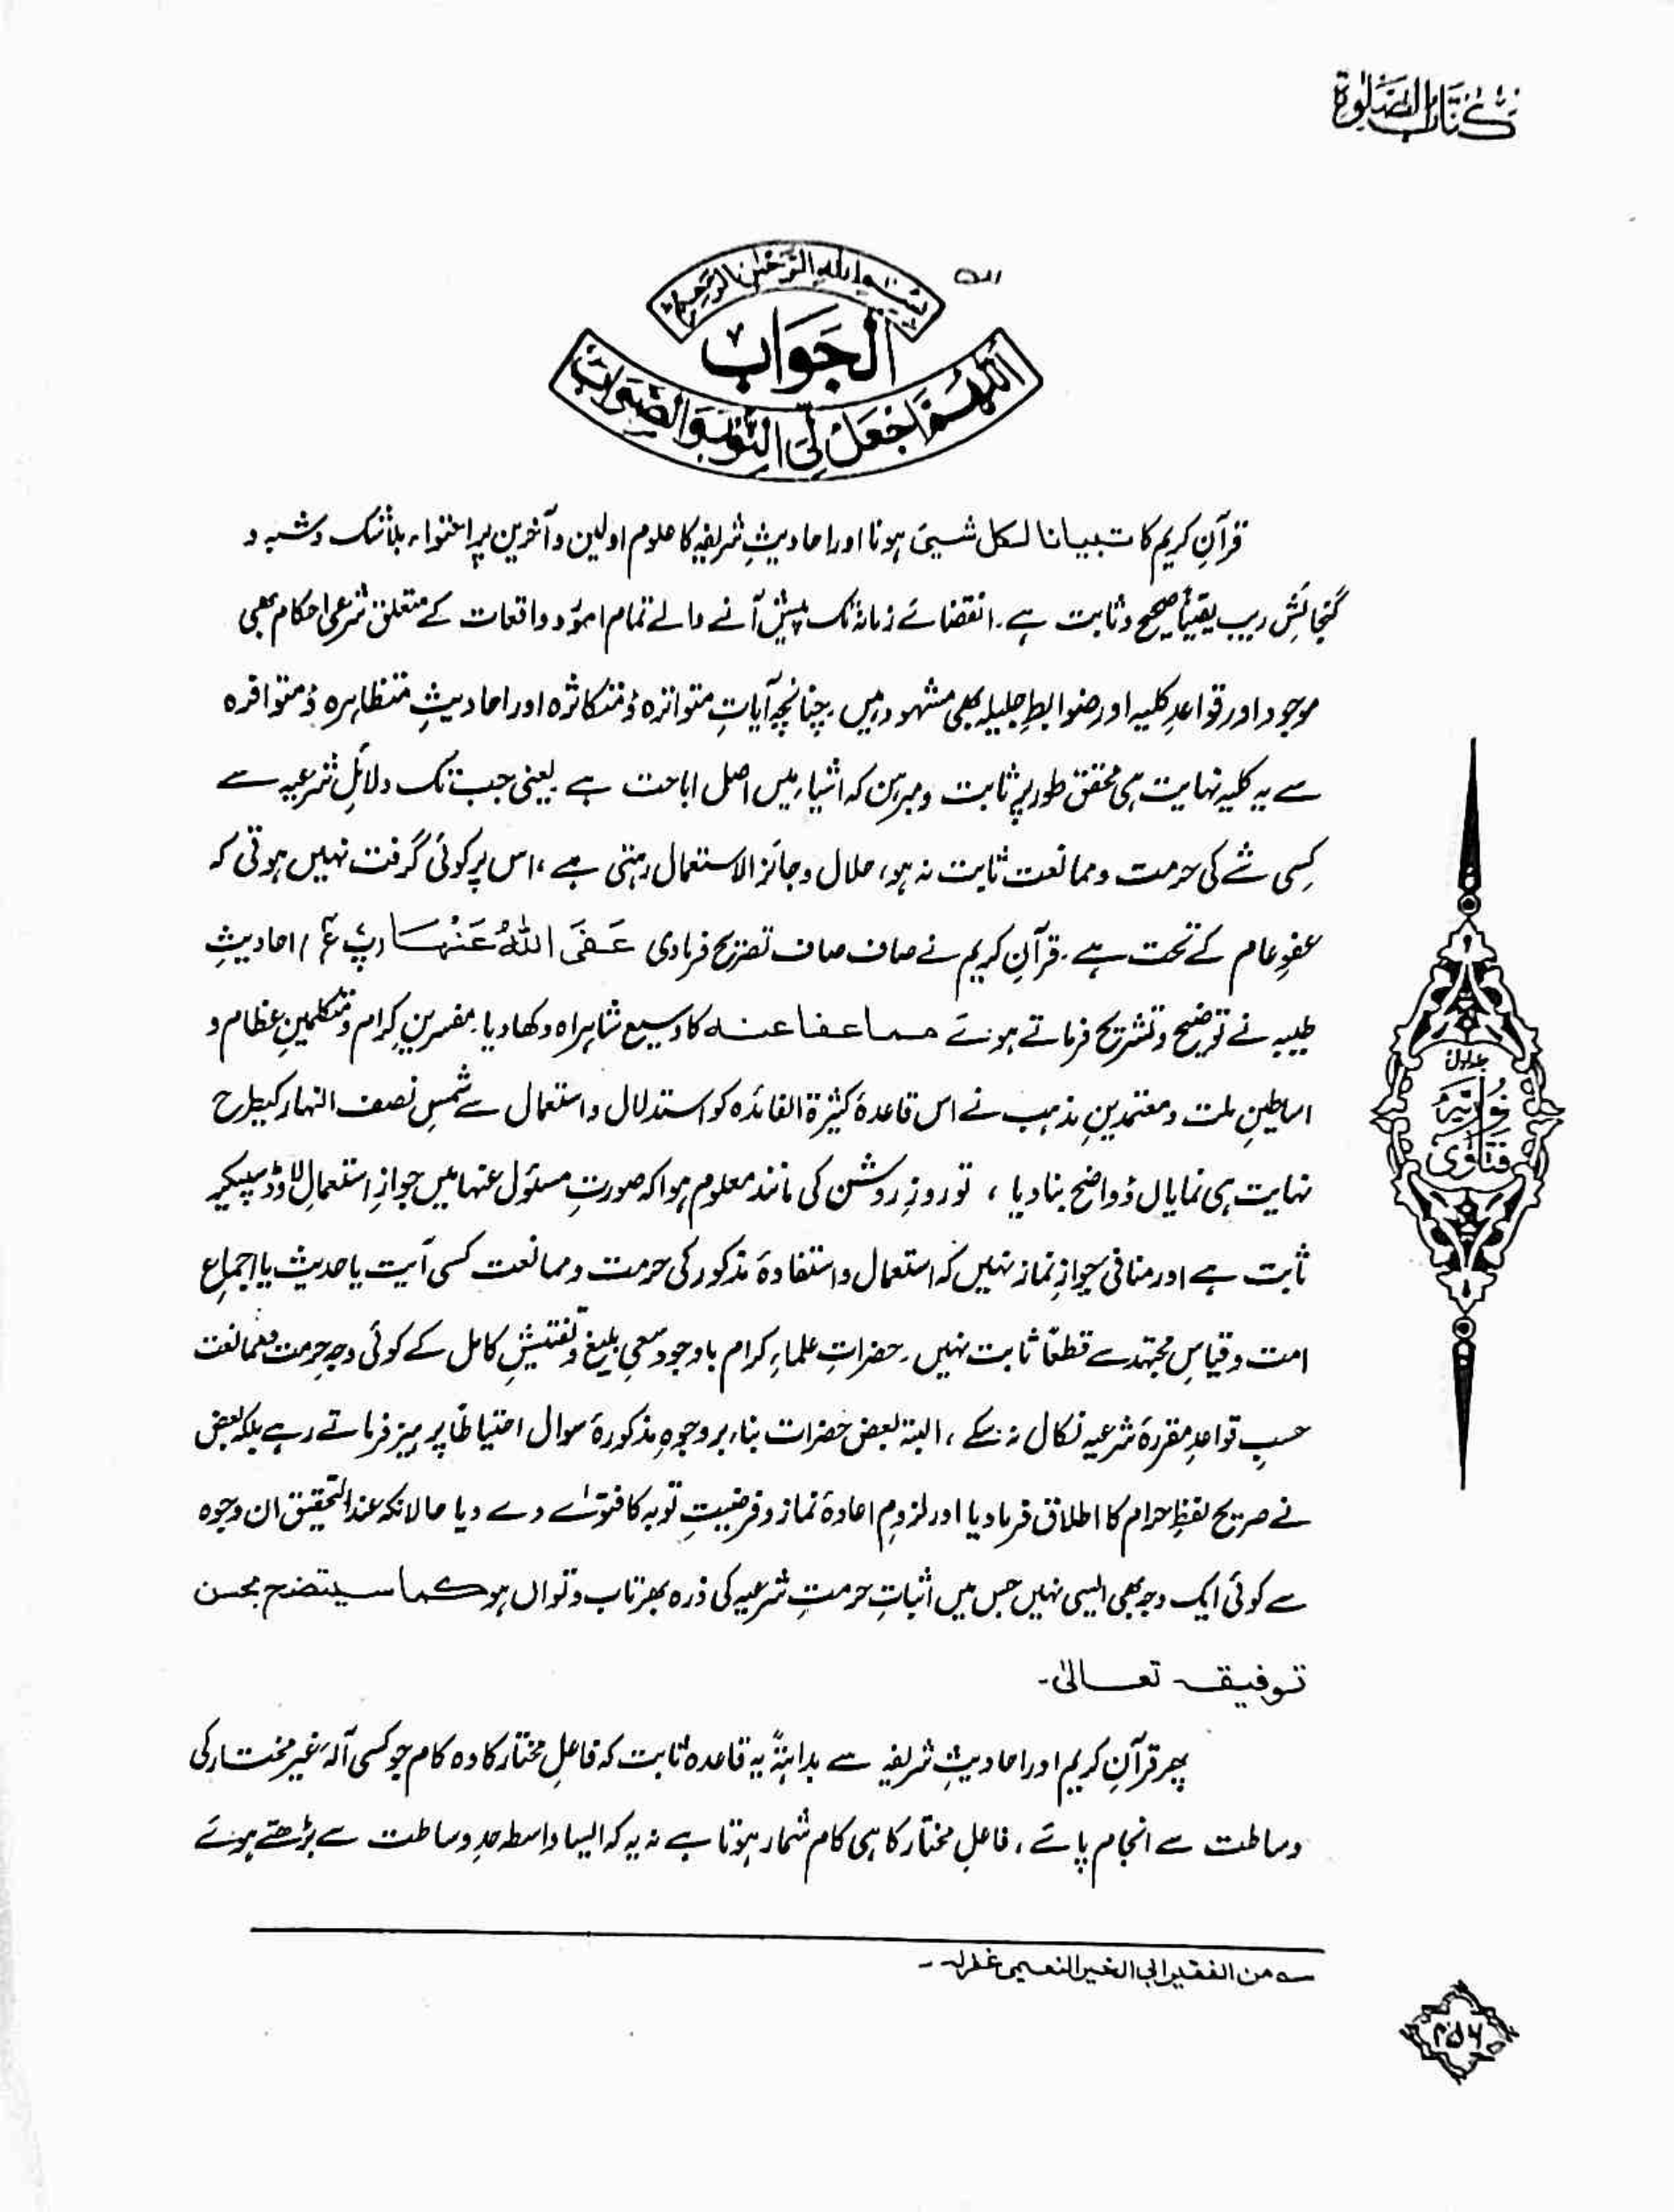 كتاب الصلوة
بسم الله الرحمن الرحيم
الجواب
اللهم اجعل لی النور والصواب
قرآنِ کریم کا تبیانا لکل شیئ ہونا اور احادیثِ شریفہ کا علوم اولین و آخرین پر احتواء بلاشک و شبہ و
گنجائشِ ریب یقیناً صحیح و ثابت ہے۔ انقضائے زمانہ تک پیش آنے والے تمام امور و واقعات کے متعلق شرعی احکام بھی
موجود اور قواعدِ کلیہ اور ضوابطِ جلیلہ بھی مشہود ہیں۔ چنانچہ آیاتِ متواترہ و متکاثرہ اور احادیثِ متظاہرہ و متوافرہ
سے یہ کلیہ نہایت ہی محقق طور پر ثابت و مبرہن کہ اشیاء میں اصل اباحت ہے یعنی جب تک دلائلِ شرعیہ سے
کسی شے کی حرمت و ممانعت ثابت نہ ہو، حلال و جائز الاستعمال رہتی ہے، اس پر کوئی گرفت نہیں ہوتی کہ
عفوِ عام کے تحت ہے۔ قرآنِ کریم نے صاف صاف تصریح فرمادی عَفَی اللّٰهُ عَنْهَا احادیثِ
طیبہ نے توضیح و تشریح فرماتے ہوئے مما عفا عنه کا وسیع شاہراہ دکھادیا۔ مفسرینِ کرام و متکلمینِ عظام و
اساطینِ ملت و معتمدینِ مذہب نے اس قاعدۂ کثیرۃ الفائدہ کو استدلال و استعمال سے شمسِ نصف النہار کیطرح
نہایت ہی نمایاں و واضح بنادیا، تو روزِ روشن کی مانند معلوم ہوا کہ صورتِ مسئول عنہا میں جوازِ استعمالِ لاؤڈ سپیکر
ثابت ہے اور منافی جوازِ نماز نہیں کہ استعمال و استفادۂ مذکور کی حرمت و ممانعت کسی آیت یا حدیث یا اجماعِ
امت و قیاسِ مجتہد سے قطعًا ثابت نہیں۔ حضراتِ علماءِ کرام باوجود سعیِ بلیغ و تفتیشِ کامل کے کوئی وجہِ حرمت و ممانعت
حسبِ قواعدِ مقررۂ شرعیہ نکال نہ سکے، البتہ بعض حضرات بناء بر وجوہِ مذکورۂ سوال احتیاطًا پرہیز فرماتے رہے بلکہ بعض
نے صریح لفظِ حرام کا اطلاق فرمادیا اور لزومِ اعادۂ نماز و فرضیتِ توبہ کا فتوٰے دے دیا حالانکہ عند التحقیق ان وجوہ
سے کوئی ایک وجہ بھی ایسی نہیں جس میں اثباتِ حرمتِ شرعیہ کی ذرہ بھر تاب و تواں ہو کما سیتضح بحسن
توفیقہ تعالیٰ۔
پھر قرآنِ کریم اور احادیثِ شریفہ سے بداہۃً یہ قاعدہ ثابت کہ فاعلِ مختار کا وہ کام جو کسی آلۂ غیر مختار کی
وساطت سے انجام پائے، فاعلِ مختار کا ہی کام شمار ہوتا ہے نہ یہ کہ ایسا واسطہ حدِ وساطت سے بڑھتے ہوئے
جلداول
نوریہ
فتاوی
من الفقیر ابی الخیر النعیمی غفرلہ۔
۲۵۶